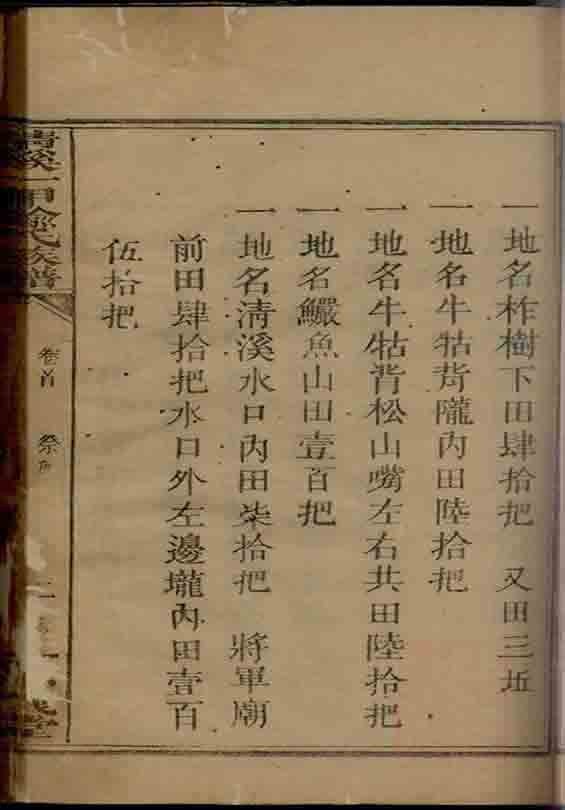 一地名柞樹下田肆拾把 又田三坵
一地名牛牯背隴內田陸拾把
一地名牛牯背松山嘴左右共田陸拾把
一地名鱺魚山田壹百把
一地名清溪水口內田柴拾把 將軍廟
前田肆拾把水口外左邊壠內田壹百
伍拾把
清溪一甲 氏族譜
卷首 祭